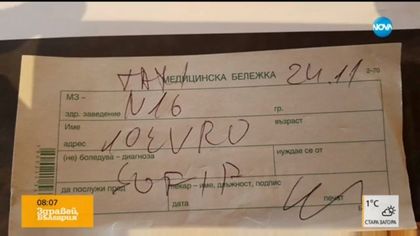 NOVA
TAXI МЕДИЦИНСКА БЕЛЕЖКА 24.11
МЗ –
N16
здр. заведение гр.
Име възраст
10EVRO
адрес
(не) боледува – диагноза нуждае се от
SOFIA
да послужи пред лекар – име, длъжност, подпис
дата печат
08:07
Здравей,
България
1°C
СТАРА ЗАГОРА